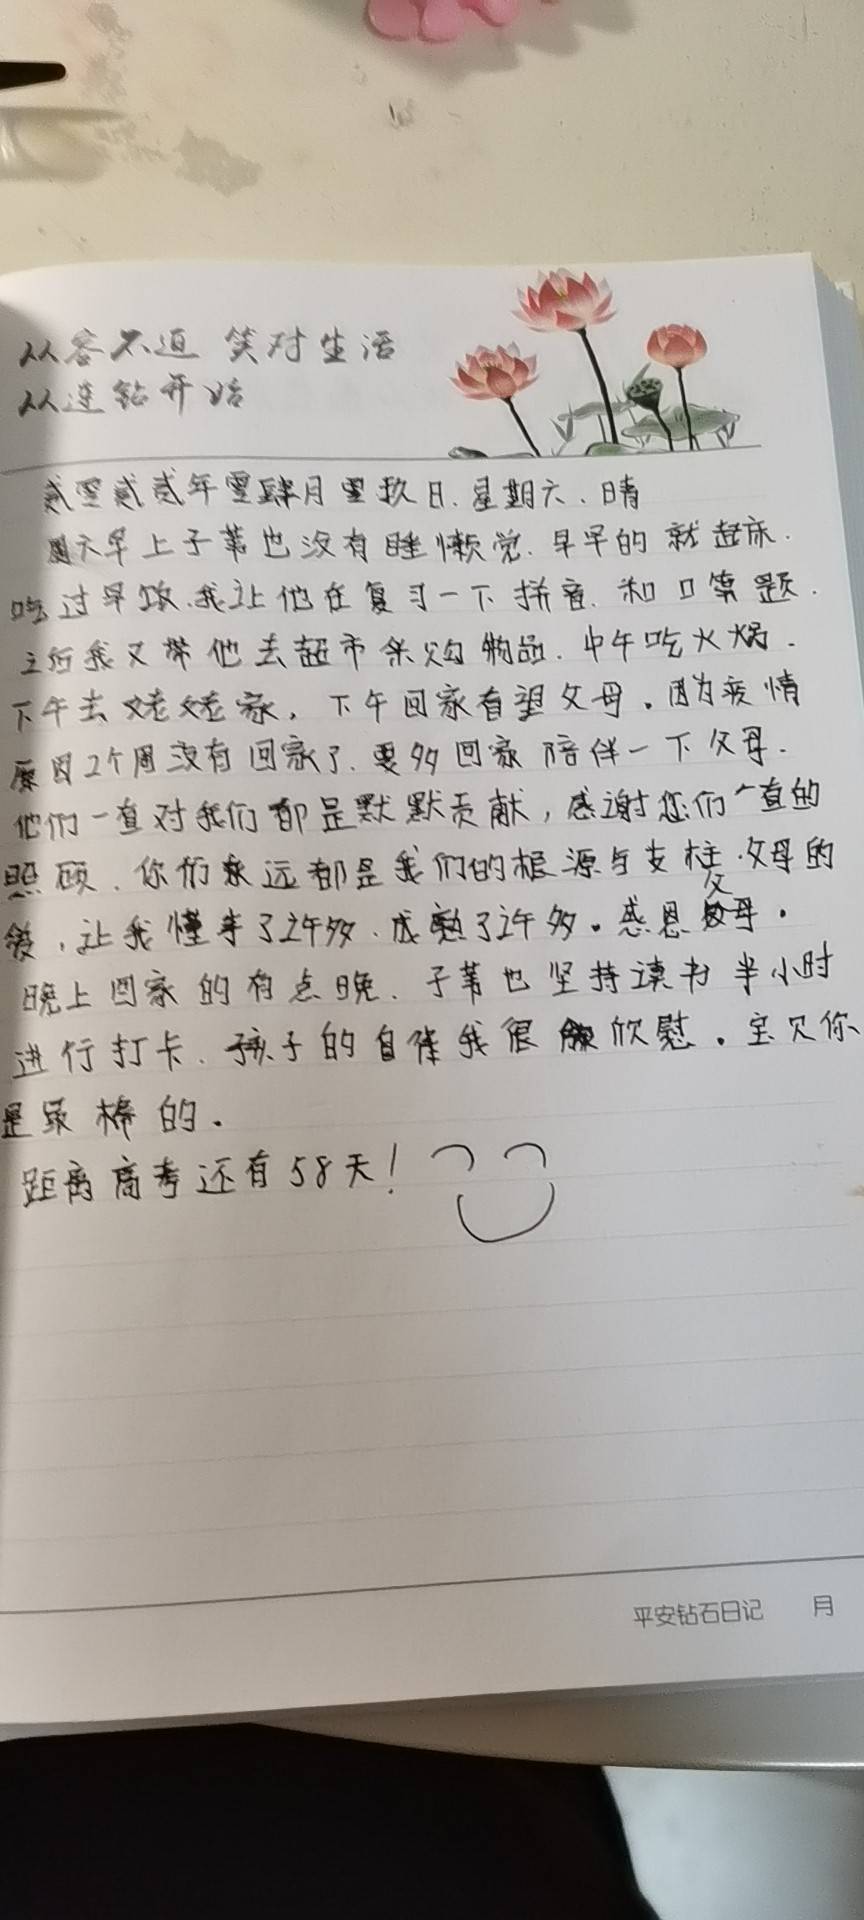 从容不迫 笑对生活
从连钻开始
贰零贰贰年零肆月零玖日.星期六.晴
今天早上子苇也没有睡懒觉.早早的就起床.
吃过早饭.我让他在复习一下拼音.和口算题.
之后我又带他去超市采购物品.中午吃火锅.
下午去姥姥家,下午回家看望父母。因为疫情
原因2个周没有回家了.要多回家陪伴一下父母.
他们一直对我们都是默默贡献,感谢您们一直的
照顾.你们永远都是我们的根源与支柱.父母的
爱,让我懂事了许多.成熟了许多。感恩父母.
晚上回家的有点晚.子苇也坚持读书半小时
进行打卡.孩子的自律我很欣慰。宝贝你
是最棒的.
距离高考还有58天!
平安钻石日记 月